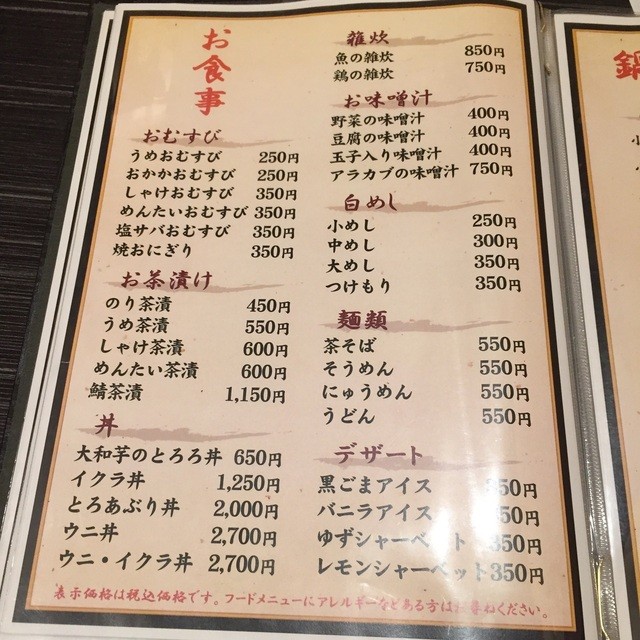 お食事
おむすび
うめおむすび 250円
おかかおむすび 250円
しゃけおむすび 350円
めんたいおむすび 350円
塩サバおむすび 350円
焼おにぎり 350円
お茶漬け
のり茶漬 450円
うめ茶漬 550円
しゃけ茶漬 600円
めんたい茶漬 600円
鯖茶漬 1,150円
丼
大和芋のとろろ丼 650円
イクラ丼 1,250円
とろあぶり丼 2,000円
ウニ丼 2,700円
ウニ・イクラ丼 2,700円
雑炊
魚の雑炊 850円
鶏の雑炊 750円
お味噌汁
野菜の味噌汁 400円
豆腐の味噌汁 400円
玉子入り味噌汁 400円
アラカブの味噌汁 750円
白めし
小めし 250円
中めし 300円
大めし 350円
つけもり 350円
麺類
茶そば 550円
そうめん 550円
にゅうめん 550円
うどん 550円
デザート
黒ごまアイス 350円
バニラアイス 350円
ゆずシャーベット 350円
レモンシャーベット 350円
表示価格は税込価格です。フードメニューにアレルギーなどある方はお尋ねください。
鍋